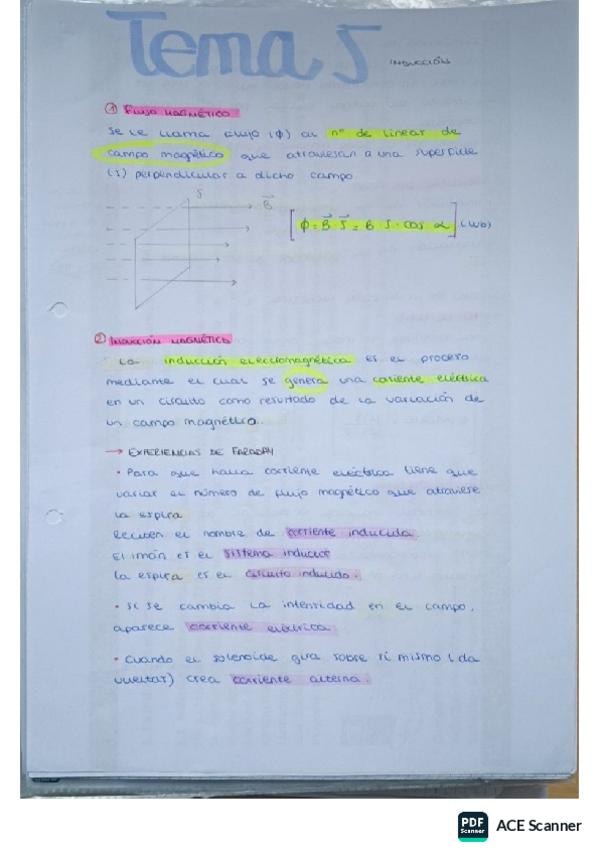 Tema 5 INDUCCIÓN
① FLUJO MAGNÉTICO
Se le llama flujo (ϕ) al nº de lineas de
campo magnético que atraviesan a una superficie
(S) perpendicular a dicho campo
S B⃗
[ϕ = B⃗ · S⃗ = B · S · cos α] (Wb)
② INDUCCIÓN MAGNÉTICA
La inducción electromagnética es el proceso
mediante el cual se genera una corriente eléctrica
en un circuito como resultado de la variación de
un campo magnético.
→ EXPERIENCIAS DE FARADAY
• Para que haya corriente eléctrica tiene que
variar el número de flujo magnético que atraviese
la espira
Reciben el nombre de corriente inducida.
El imán es el sistema inductor
la espira es el circuito inducido.
• Si se cambia la intensidad en el campo,
aparece corriente eléctrica.
• Cuando el solenoide gira sobre si mismo (da
vueltas) crea corriente alterna.
PDF
Scanner
ACE Scanner